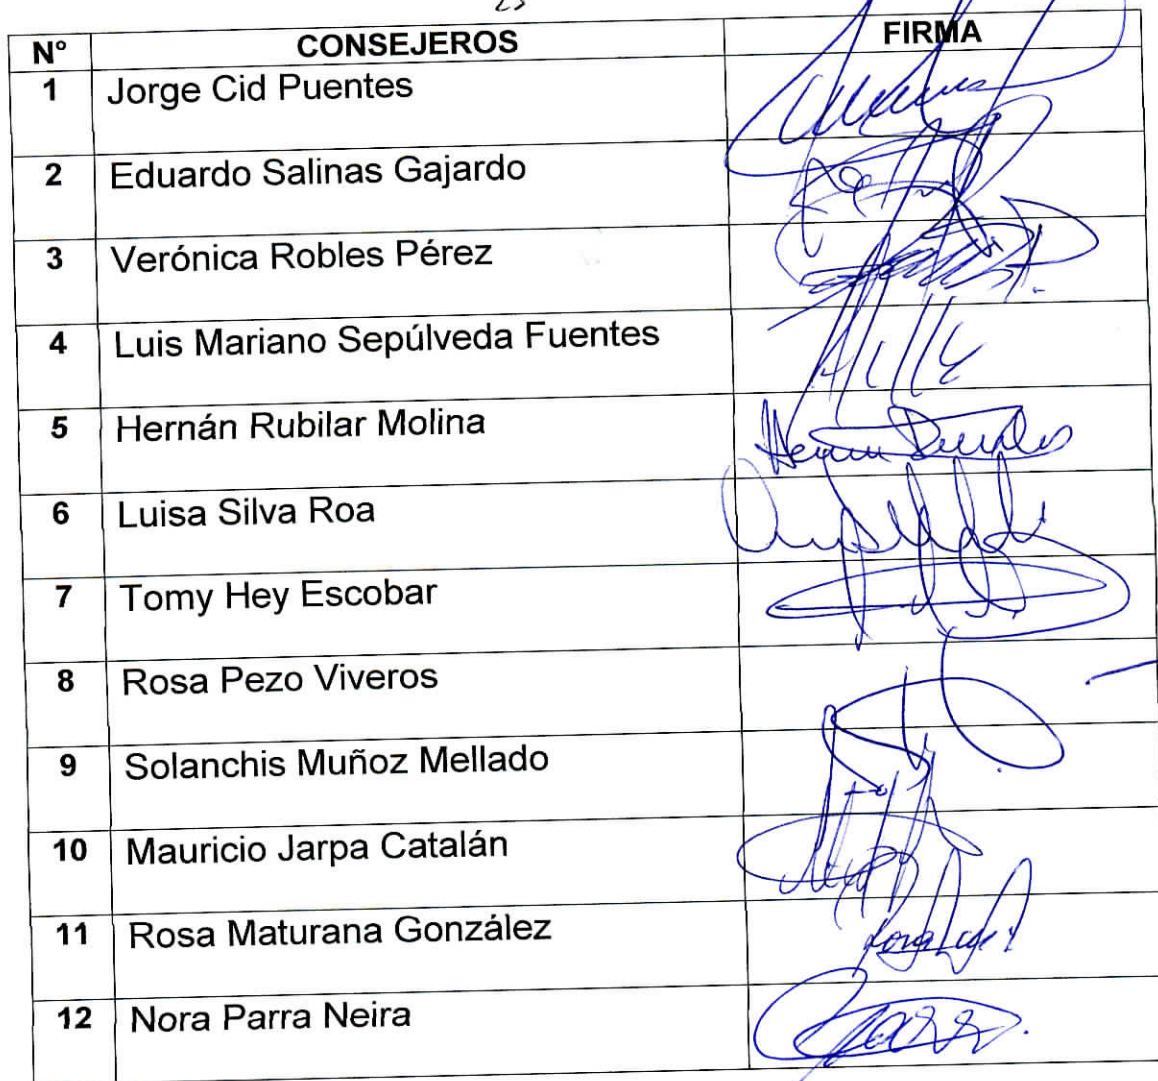 N° CONSEJEROS FIRMA
1 Jorge Cid Puentes
2 Eduardo Salinas Gajardo
3 Verónica Robles Pérez
4 Luis Mariano Sepúlveda Fuentes
5 Hernán Rubilar Molina
6 Luisa Silva Roa
7 Tomy Hey Escobar
8 Rosa Pezo Viveros
9 Solanchis Muñoz Mellado
10 Mauricio Jarpa Catalán
11 Rosa Maturana González
12 Nora Parra Neira